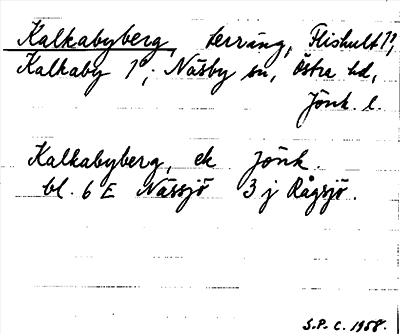 Kalkabyberg, terräng, Flishult 1⁰,
Kalkaby 1⁰; Näsby sn, Östra hd,
Jönk. l.
Kalkabyberg, ek Jönk.
bl. 6 E Nässjö 3 j Rågsjö.
S.P. C. 1958.